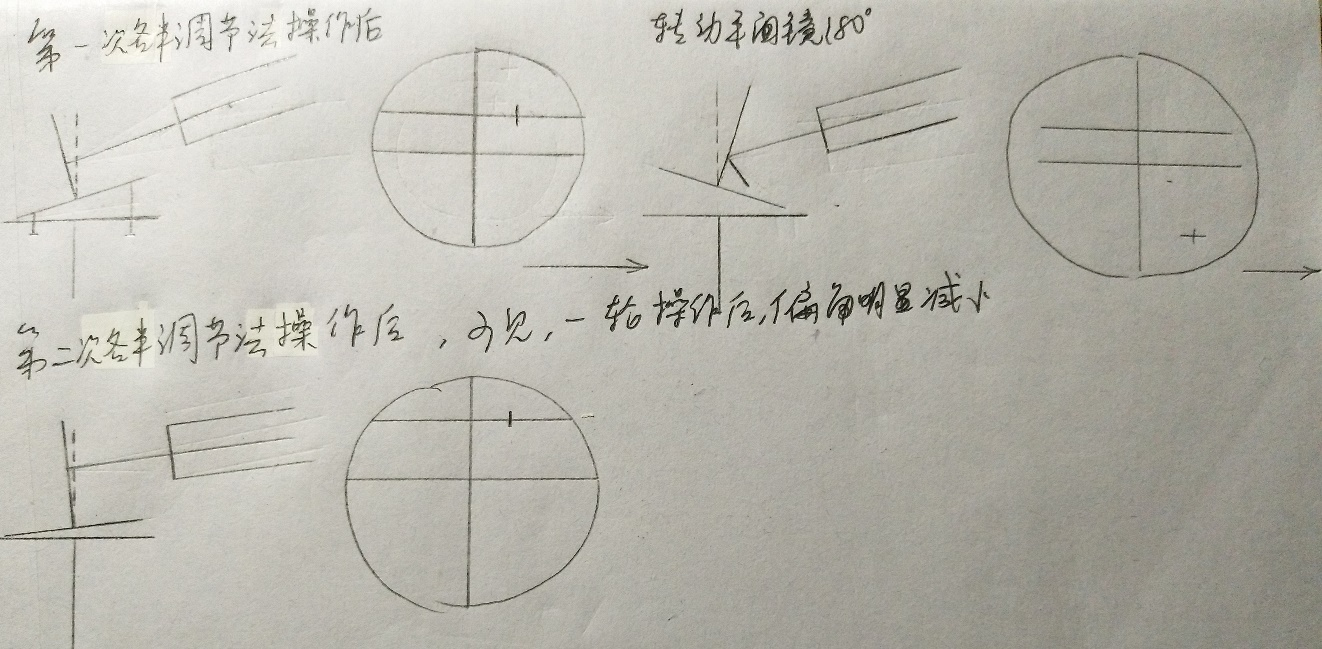 第一次各半调节法操作后
转动平面镜180°
第二次各半调节法操作后，可见，一轮操作后，偏角明显减小